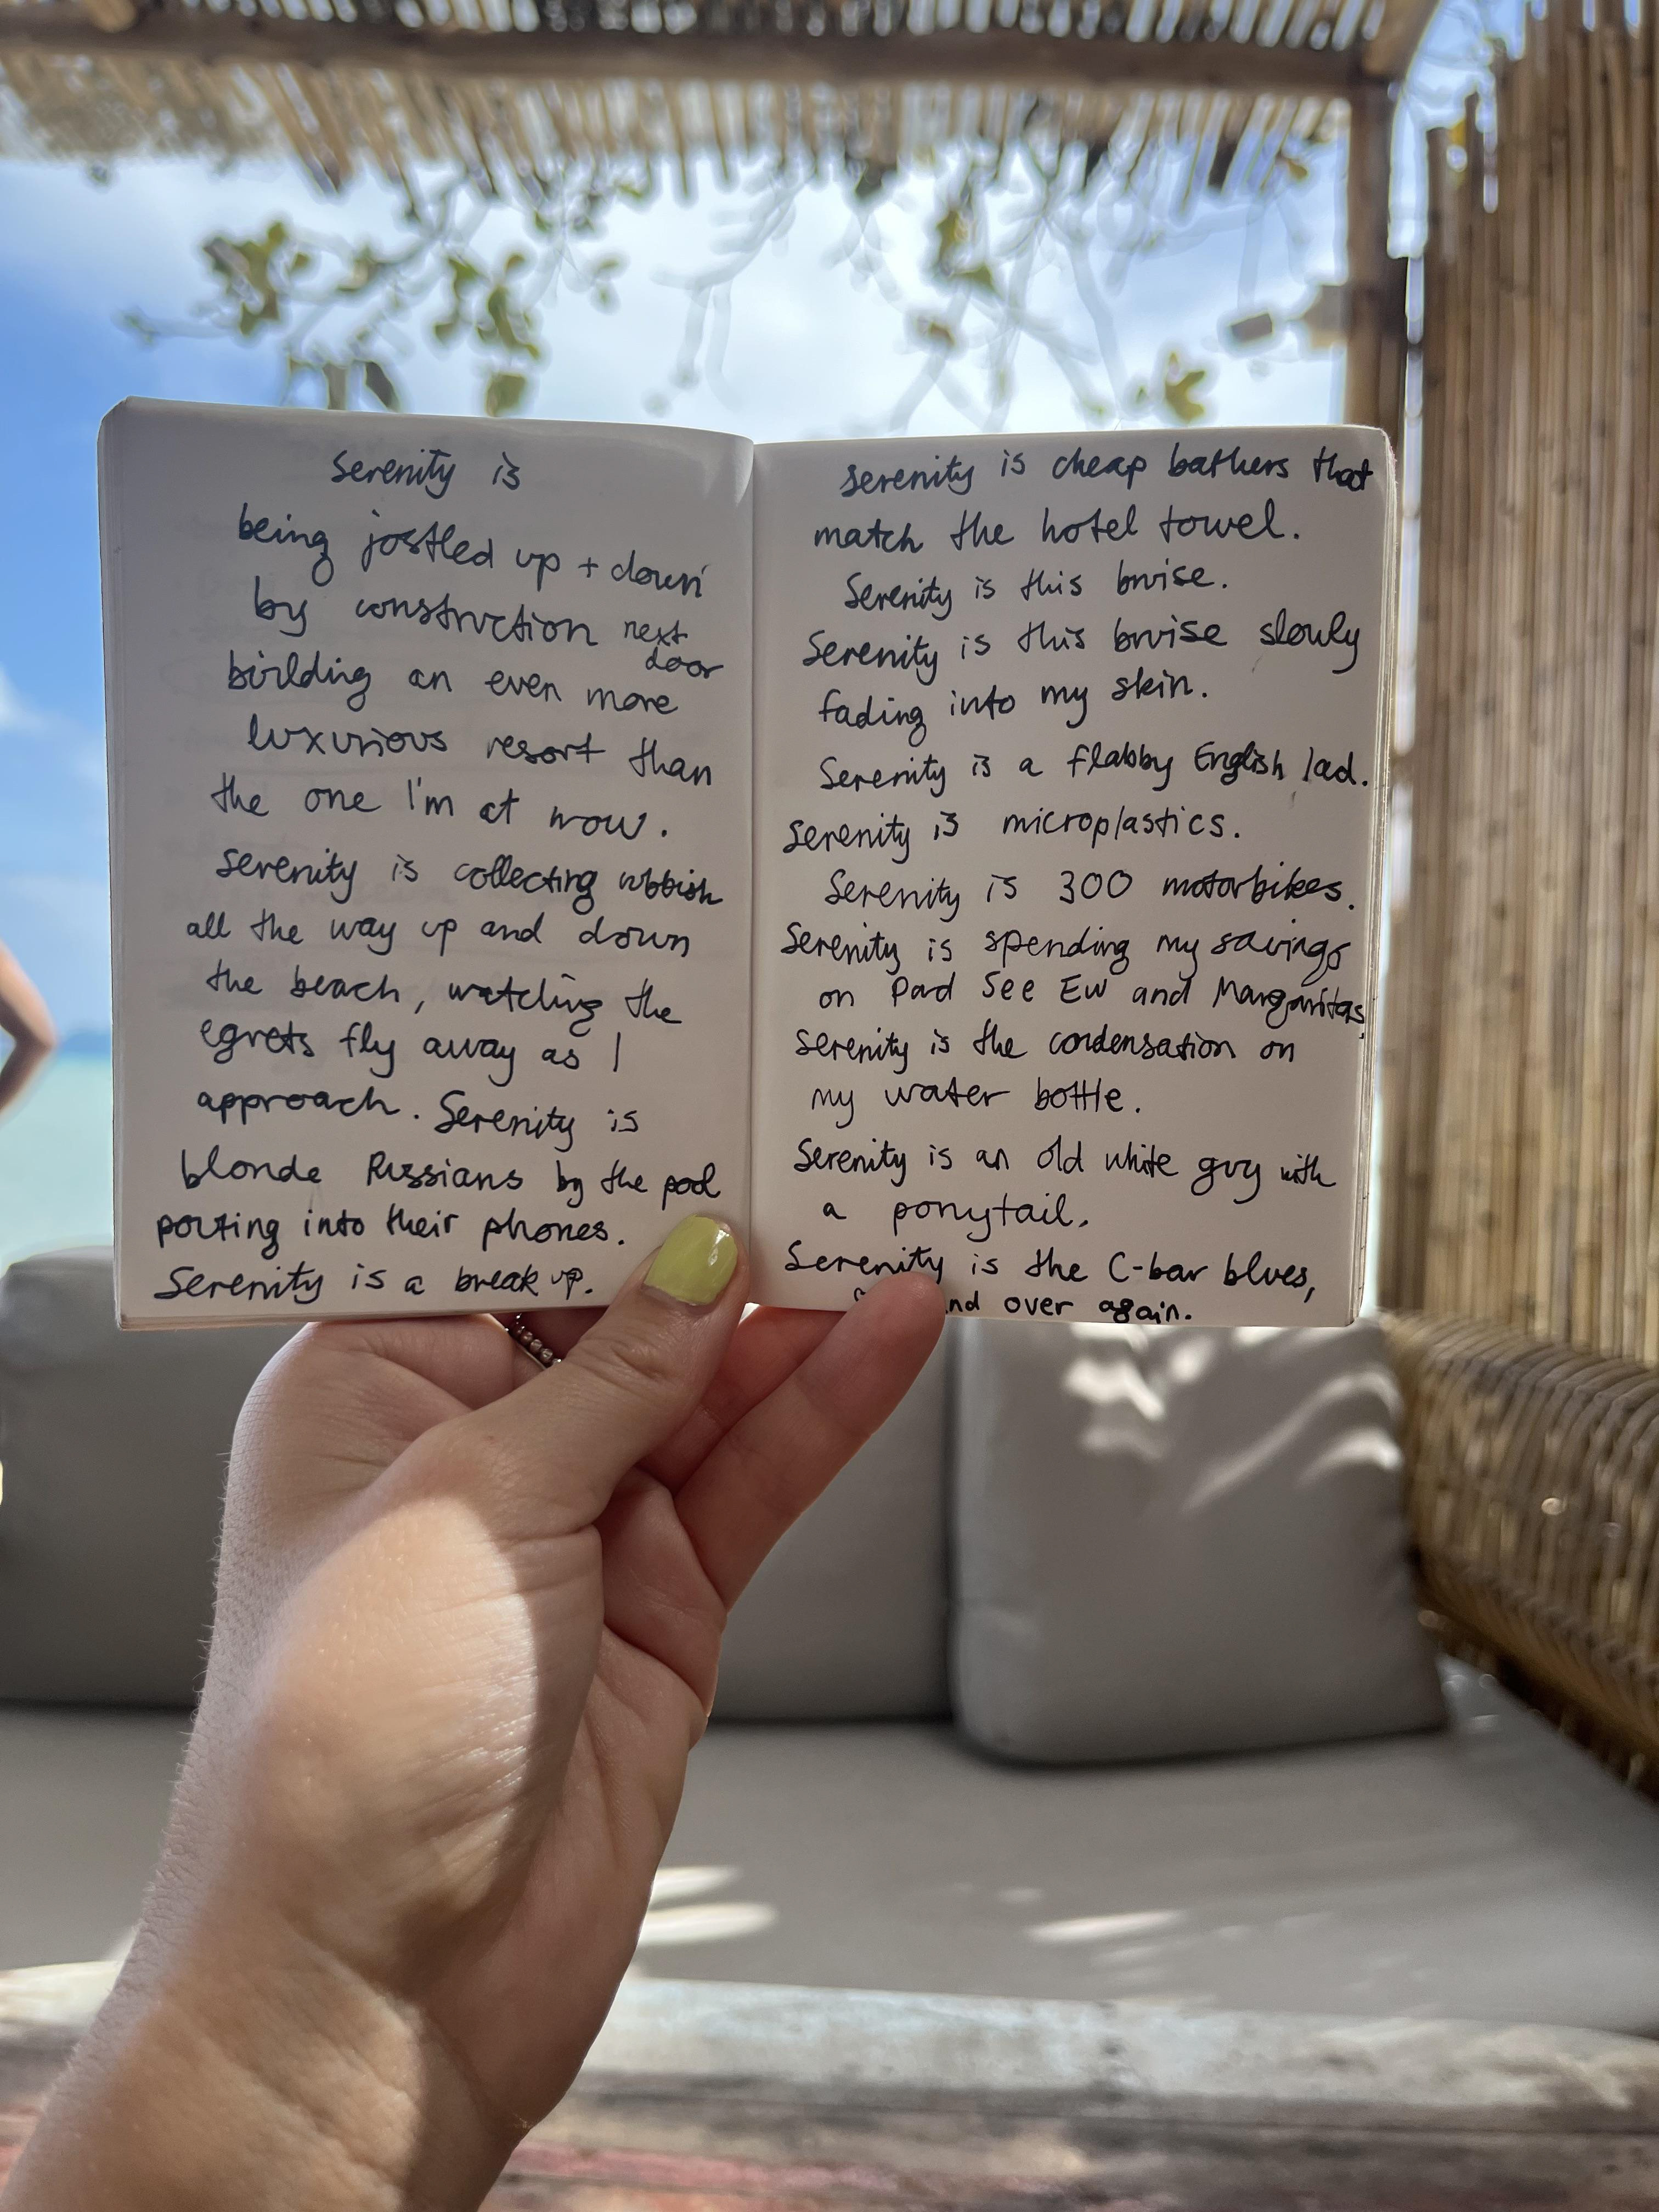 Serenity is
being jostled up + down
by construction next door
building an even more
luxurious resort than
the one I'm at now.
Serenity is collecting rubbish
all the way up and down
the beach, watching the
egrets fly away as I
approach. Serenity is
blonde Russians by the pool
pouting into their phones.
Serenity is a break up.
Serenity is cheap bathers that
match the hotel towel.
Serenity is this bruise.
Serenity is this bruise slowly
fading into my skin.
Serenity is a flabby English lad.
Serenity is microplastics.
Serenity is 300 motorbikes.
Serenity is spending my savings
on Pad See Ew and Margaritas.
Serenity is the condensation on
my water bottle.
Serenity is an old white guy with
a ponytail.
Serenity is the C-bar blues,
over again.